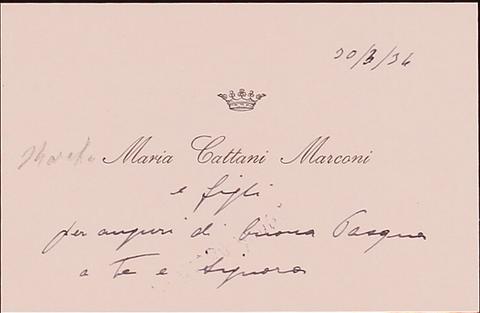 30/3/36
Maria Cattani Marconi
e figli
per auguri di buona Pasqua
a Te e Signora